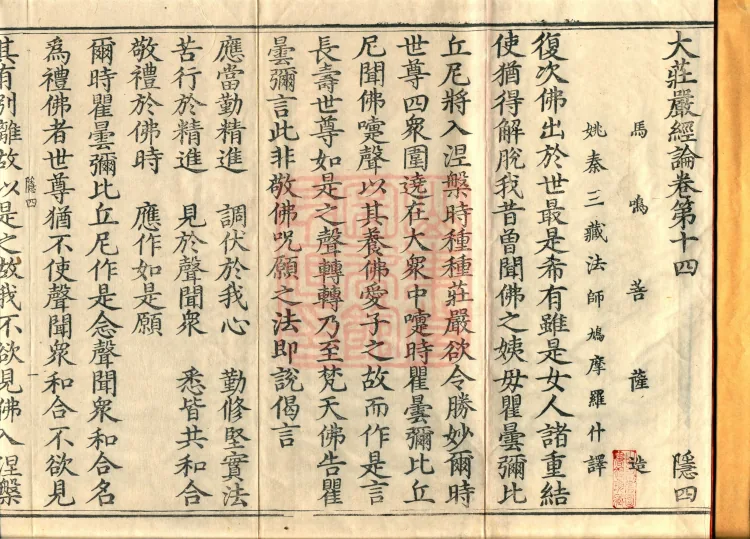 大莊嚴經論卷第十四 隱四
馬鳴菩薩造
姚秦三藏法師鳩摩羅什譯
復次佛出於世最是希有雖是女人諸重結
使猶得解脫我昔曾聞佛之姨母瞿曇彌比
丘尼將入涅槃時種種莊嚴欲令勝妙爾時
世尊四衆圍遶在大衆中嚏時瞿曇彌比丘
尼聞佛嚏聲以其養佛愛子之故而作是言
長壽世尊如是之聲轉轉乃至梵天佛告瞿
曇彌言此非敬佛呪願之法即說偈言
應當勤精進 調伏於我心 勤修堅實法
苦行於精進 見於聲聞衆 悉皆共和合
敬禮於佛時 應作如是願
爾時瞿曇彌比丘尼作是念聲聞衆和合名
爲禮佛者世尊猶不使聲聞衆和合不欲見
隱四 一
其有別離故以是之故我不欲見佛入涅槃